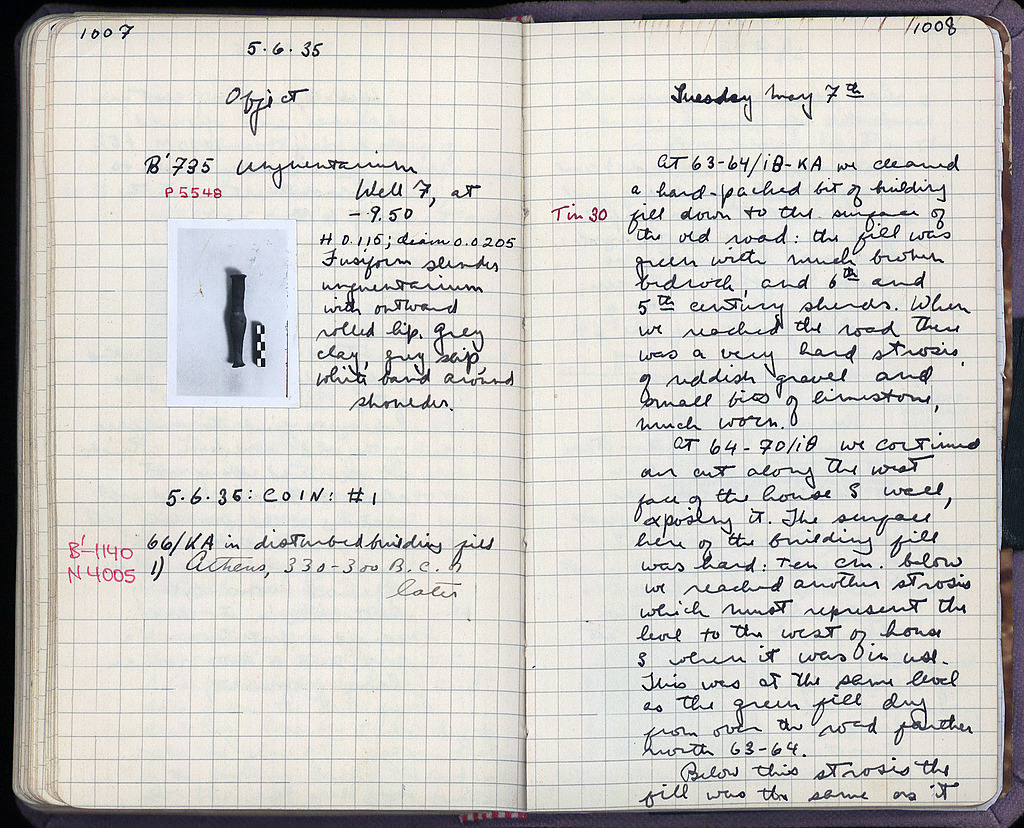 1007
5·6·35
Object
B'735 Unguentarium
P 5548
Well 7, at
-9.50
H 0.115; diam 0.0205
Fusiform slender
unguentarium
with outward
rolled lip. Grey
clay, grey slip,
white band around
shoulder.
5·6·35: COIN: #1
66/KA in disturbed building fill
B'-1140
N 4005
1) Athens, 330-300 B.C. or
later
1008
Tuesday May 7th
At 63-64/ΙΘ-KA we cleaned
a hard-packed bit of building
Tin 30
fill down to the surface of
the old road: the fill was
green with much broken
bedrock, and 6th and
5th century sherds. When
we reached the road there
was a very hard strosis
of reddish gravel and
small bits of limestone,
much worn.
At 64-70/ΙΘ we continued
our cut along the west
face of the house S wall,
exposing it. The surface
here of the building fill
was hard: ten cm. below
we reached another strosis
which must represent the
level to the west of house
S when it was in use.
This was at the same level
as the green fill dug
from over the road farther
north 63-64.
Below this strosis the
fill was the same as it